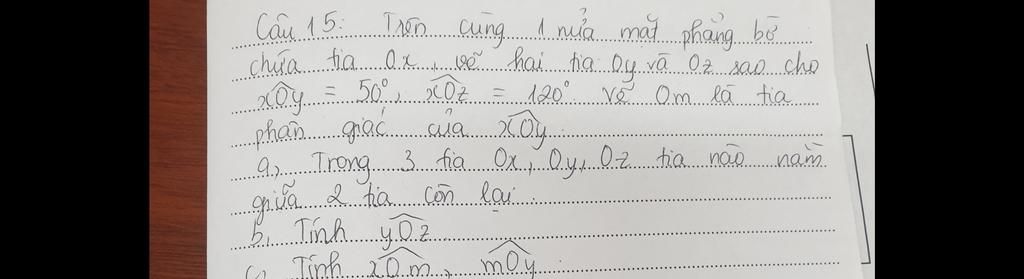 Câu 15: Trên cùng 1 nửa mặt phẳng bờ
chứa tia Ox, vẽ hai tia Oy và Oz sao cho
xOy = 50°, xOz = 120° vẽ Om là tia
phân giác của xOy.
a, Trong 3 tia Ox, Oy, Oz tia nào nằm
giữa 2 tia còn lại.
b, Tính yOz
c, Tính xOm, mOy